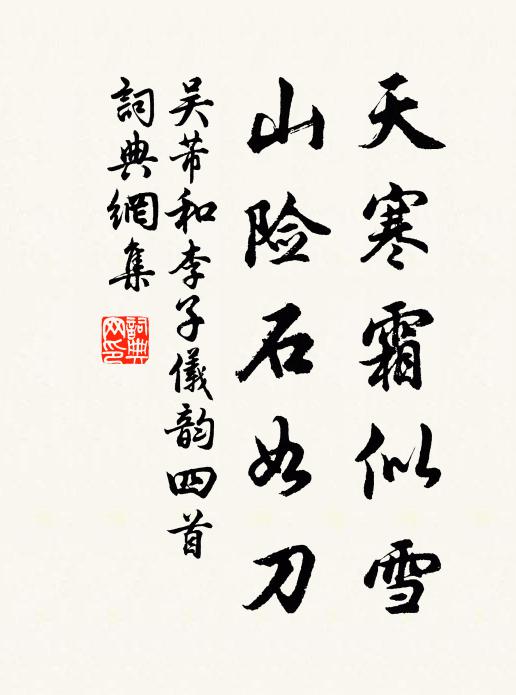 天寒霜似雪
山险石如刀
吴芾和李子儀韵四首
詞典網集
詞典网印